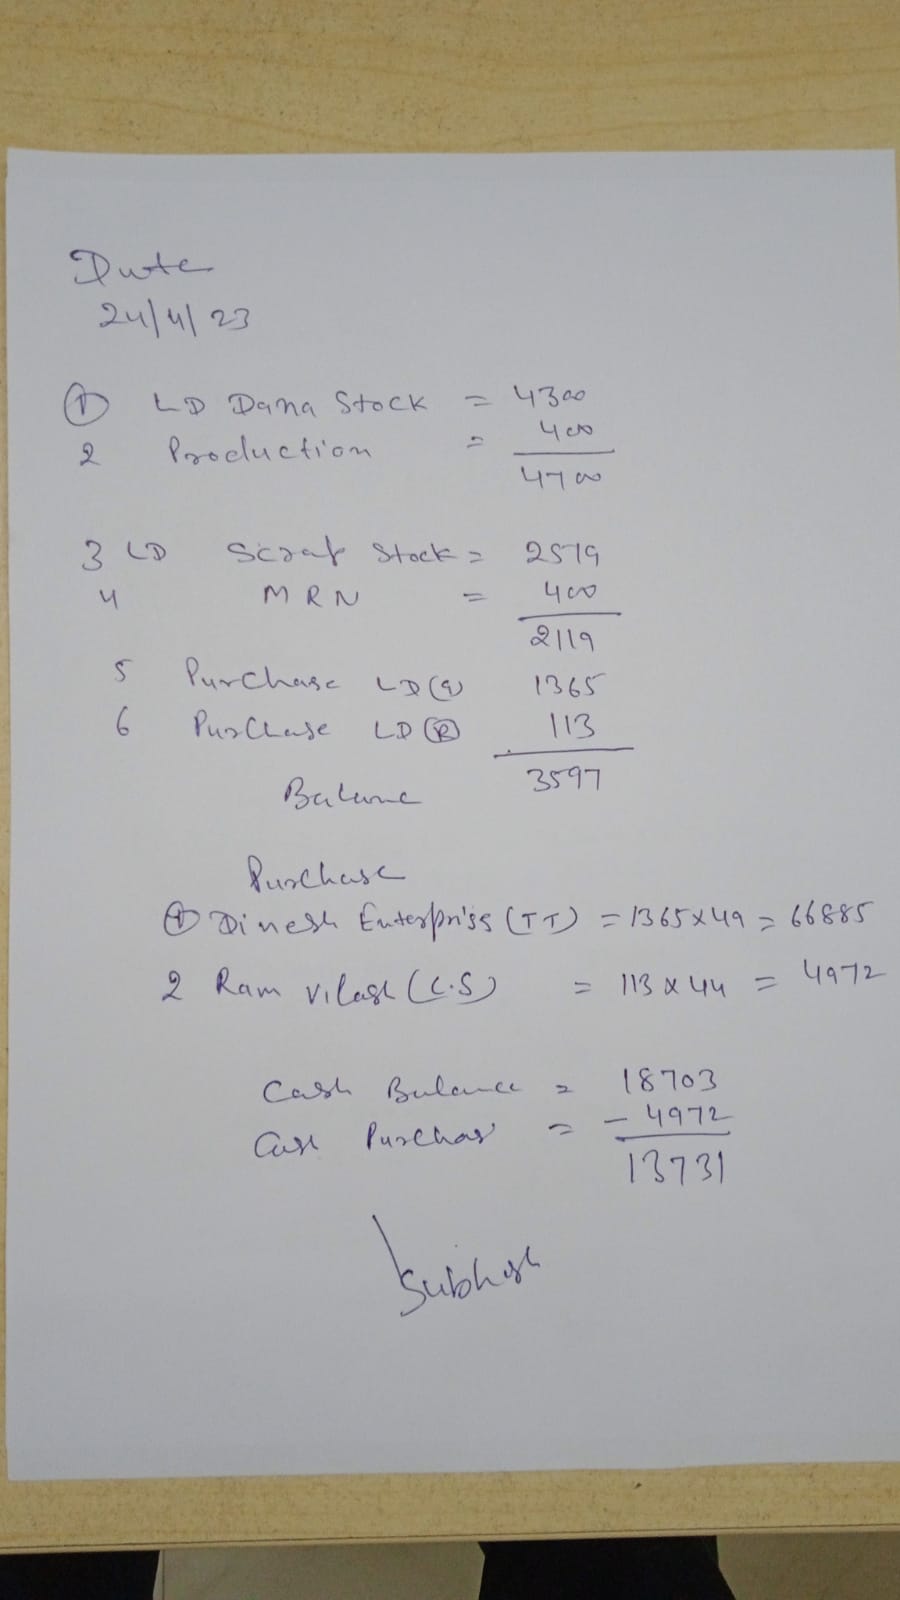 Date
24/4/23
① LD Dana Stock = 4300
2 Production = 400
4700
3 LD Scrap Stock = 2519
4 MRN = 400
2119
5 Purchase LD (a) 1365
6 Purchase LD (B) 113
Balance 3597
Purchase
① Dinesh Enterpriss (TT) = 1365 x 49 = 66885
2 Ram Vilash (C.S) = 113 x 44 = 4972
Cash Balance = 18703
Cash Purchas = - 4972
13731
Subhash